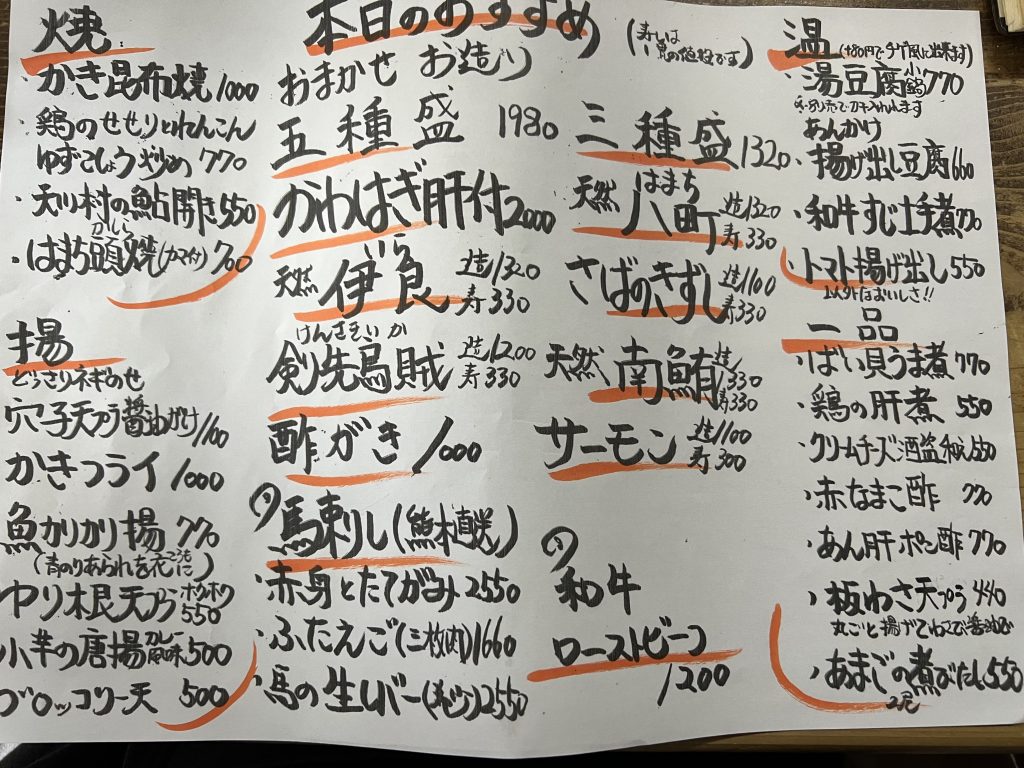 焼
・かき昆布焼 1000
・鶏のせせりとれんこん
ゆずこしょう炒め 770
・天川村の鮎開き 550
かしら
・はまち頭焼(カマイリ) 700
揚
どっさりネギのせ
穴子天プラ醤油がけ 1100
かきフライ 1000
魚かりかり揚 770
(青のりあられを衣に)
ヤリ根天プラ ホクホク 550
小芋の唐揚 カレー風味 500
ブロッコリー天 500
本日のおすすめ
(寿しは
一貫の値段です)
おまかせ お造り
五種盛 1980
三種盛 1320
かわはぎ肝付 2000
はまち
天然 八町 造1320
寿330
いら
天然 伊良 造1320
寿330
さばのきずし 造1100
寿330
けんさきいか
剣先烏賊 造1200
寿330
天然 南鮪 造1,330
寿330
酢がき 1000
サーモン 造1100
寿300
馬刺し(熊本直送)
・赤身とたてがみ 2550
・ふたえご(三枚肉) 1660
・馬の生レバー 2550
和牛
ローストビーフ
1200
温 (+80円でチゲ風に出来ます)
・湯豆腐 小鍋 770
あんかけ
・揚げ出し豆腐 660
・和牛すじ土手煮 770
・トマト揚げ出し 550
おいしさ!!
一品
・ばい貝うま煮 770
・鶏の肝煮 550
・クリームチーズ酒盗和え 550
・赤なまこ酢 770
・あん肝ポン酢 770
・板わさ天プラ 440
丸ごと揚げてわさび醤油で
・あまごの煮びたし 550
2尾